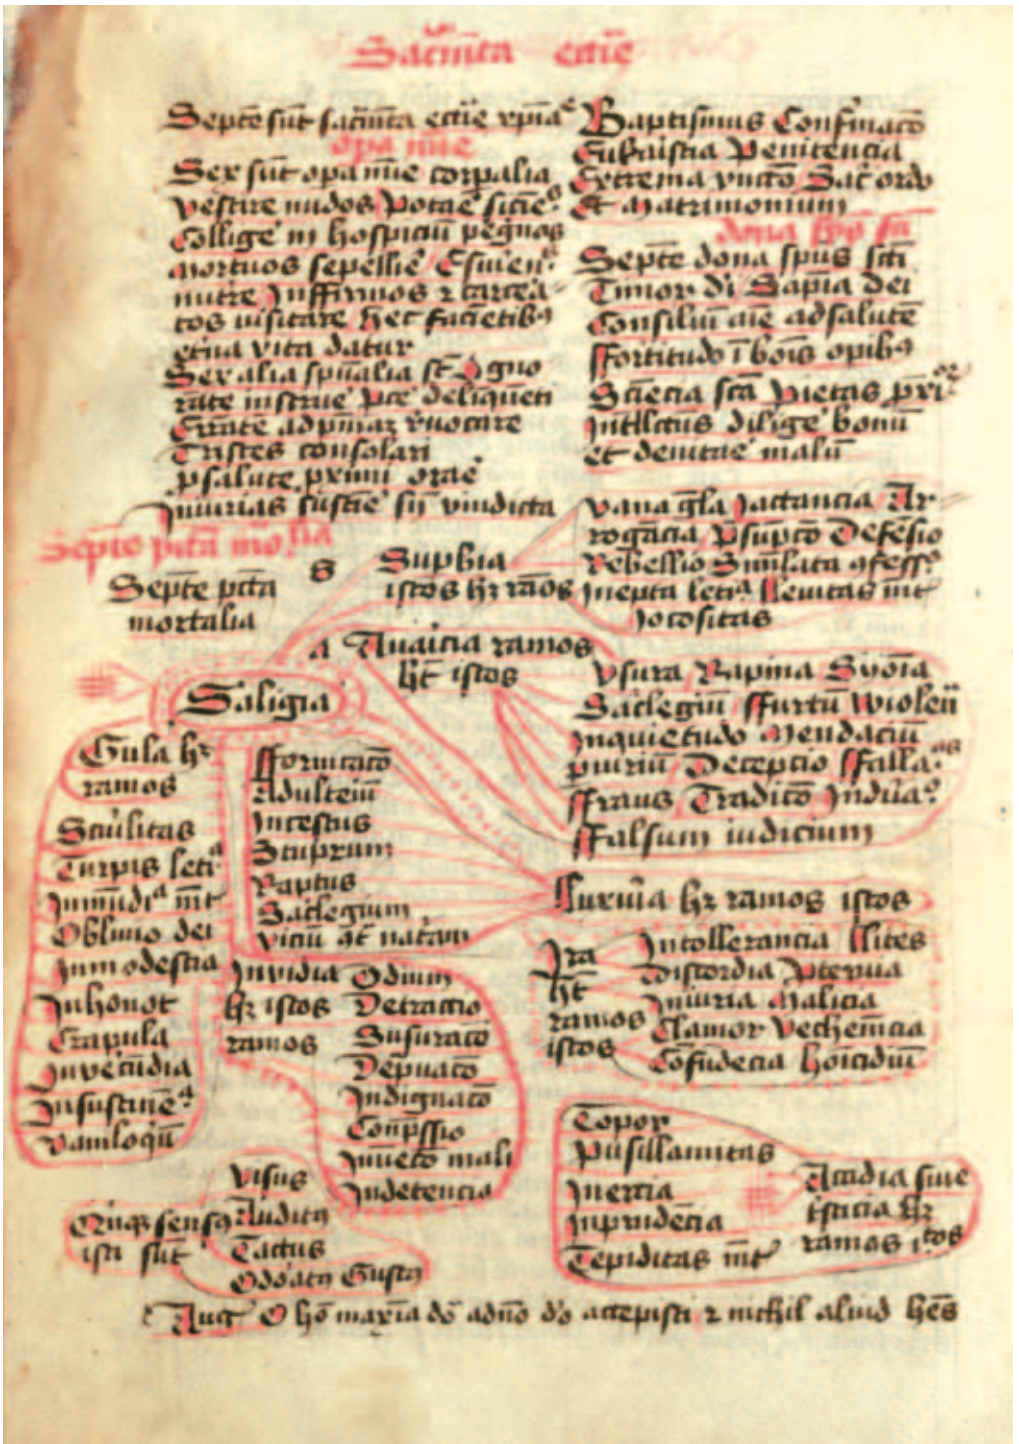 Sacm̄ta ecc̄ie
Septē sūt sacm̄ta ecc̄ie xp̄iāe
opa mīe
Sex sūt opa mīe corpalia
vestire nudos Potāe sicie
Collige in hospiciū pegnos
Mortuos sepellire Esurien
nutre Inffirmos ⁊ carcea
tos visitare Hec faciētibꝰ
et̄na vita datur
Sex alia spūalia st̄ Igno
rāte instrue pce deliquēti
Errātē ad vocare
Tristes consolari
p salute primi orāe
Iniurias sustiē sn̄ vindicta
Baptismus Confirmacō
Eukaistia Penitencia
Extrema vnctō Sac ordo
Et Matrimonium
dona spūs sc̄i
Septē dona spūs sc̄ti
Timor di Sapīa dei
Consiliū aīe ad salutē
Fortitudo ī boīs opibꝰ
Sciēcia sc̄a Pietas
Intllctus dilige bonū
et deuitāe malū
Septē pctā mortalia
Septē pctā
mortalia
S Supbia
istos hꝫ rāos
vana gl̄a Jactancia Ar
rogācia Psūpcō Defēsio
Rebellio Simlata ꝯfess
Inepta leti Lleuitas mēt
Jocositas
A Auaicia ramos
hꝫ istos
Vsura Rapina Symōia
Saclegiū ffurtū Violen
Inquietudo Mendaciū
piuriū Decepcio ffalla
ffraus Tradicō
ffalsum iudicium
Saligia
Gula hꝫ
ramos
Scurilitas
Turpis leti
Inmūdia mēt
Obliuio dei
Inmodestia
Inhonot
Crapula
Inuēcūdia
Insustinē
vaniloqū
fforniccacō
Adulteiū
Incestus
Stuprum
Raptus
Saclegium
viciū ꝯt natam
Luxuia hꝫ ramos istos
Ira
hꝫ
ramos
istos
Intollerancia Llites
Discordia Pteruia
Iniuria Malicia
Clamor Vechemēcia
Cōfudecia hoicidiū
Inuidia
hꝫ istos
ramos
Odium
Detractio
Susuracō
Depuacō
Indignacō
Conpssio
Inuecō mali
Indecencia
Topor
Pusillamitas
Inercia
Inprudēcia
Tepiditas mēt
Accidia siue
tsticia hꝫ
ramos istos
Quīqꝫ sensꝰ
isti sūt
visus
Auditꝰ
Tactus
Odoatꝰ Gustꝰ
Aug O hō maxīa dō adno dō accepisti ⁊ nichil aliud hēs